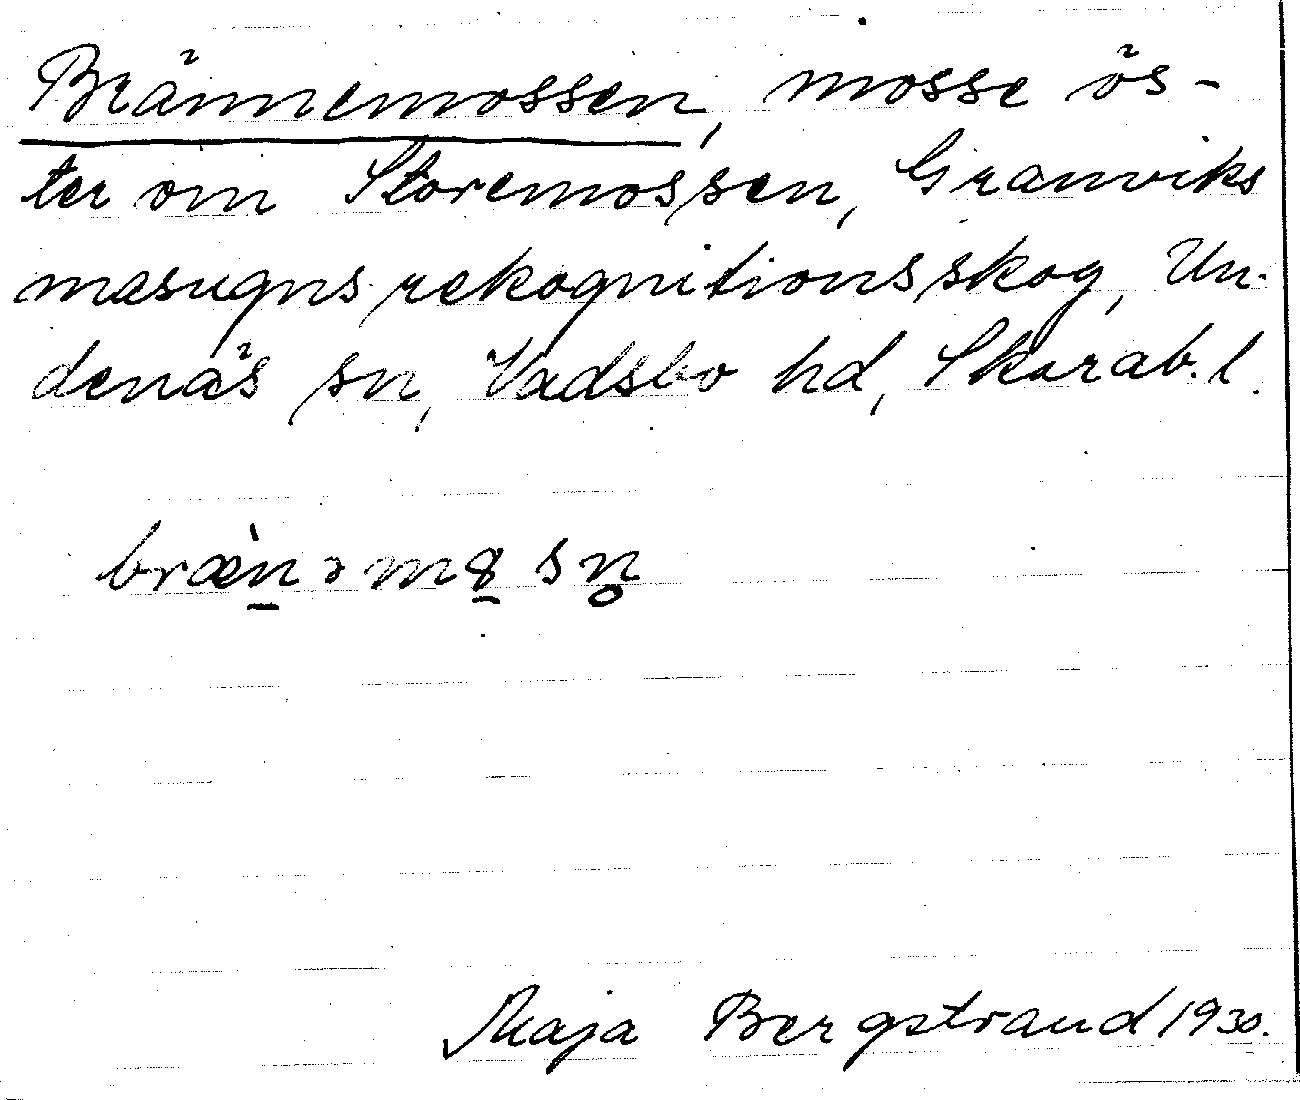 Brännemossen, mosse ös-
ter om Storemossen, Granviks
masugns rekognitionsskog, Un-
denäs sn, Vadsbo hd, Skarab. l.
bræ̀n̠əmȣ̠sn̥
Maja Bergstrand 1930.